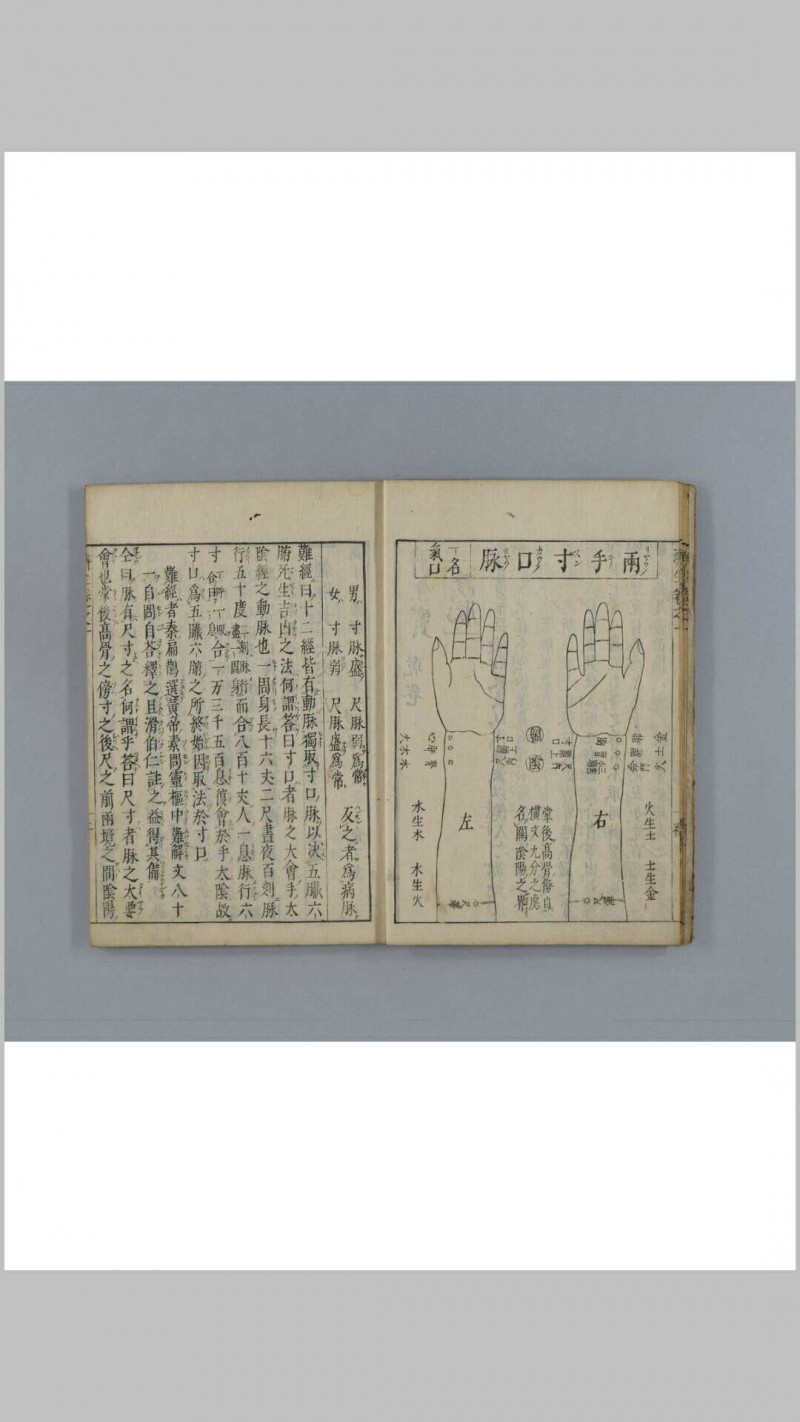 兩手寸口脉
一名
氣口
金 土 火
火生土 土生金
右
掌後高骨傍自
横文九分之處
名關陰陽之界
左
心 肝 腎
火 木 水
水生木 木生火
男 寸脉盛 尺脉弱爲常
女 寸脉弱 尺脉盛爲常 反之者爲病脉
難經曰十二經皆有動脉獨取寸口脉以决五臟六
腑死生吉凶之法何謂答曰寸口者脉之大會手太
陰經之動脉也一周身長十六丈二尺晝夜百刻脉
行五十度 而合八百十丈人一息脉行六
寸 合一万三千五百息復會於手太陰故
寸口爲五臟六腑之所終始因取法於寸口
難經者秦扁鵲選黄帝素問靈樞中難解文八十
一自問自荅釋之且滑伯仁註之益得其備
仝曰脉有尺寸之名何謂乎荅曰尺寸者脉之大要
會也掌後高骨之傍寸之後尺之前兩境之間陰陽